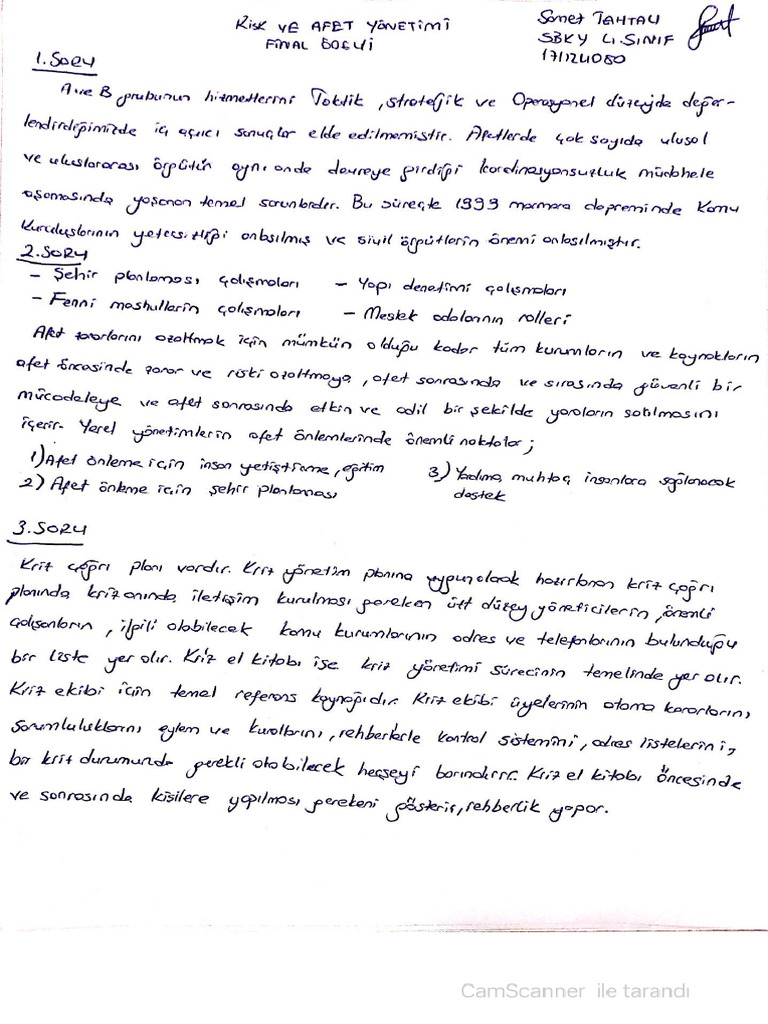 RİSK VE AFET YÖNETİMİ
FİNAL ÖDEVİ
Samet TAHTALI
SBKY 4. SINIF
171124080
1. SORU
A ve B grubunun hizmetlerini Taktik, stratejik ve Operasyonel düzeyde değer-
lendirdiğimizde iç açıcı sonuçlar elde edilmemiştir. Afetlerde çok sayıda ulusal
ve uluslararası örgütün aynı anda devreye girdiği koordinasyonsuzluk müdahele
aşamasında yaşanan temel sorunlardır. Bu süreçte 1999 marmara depreminde Kamu
Kuruluşlarının yetersizliği anlaşılmış ve sivil örgütlerin önemi anlaşılmıştır.
2. SORU
- Şehir planlaması çalışmaları - Yapı denetimi çalışmaları
- Fenni meshullerin çalışmaları - Meslek odalarının rolleri
Afet zararlarını azaltmak için mümkün olduğu kadar tüm kurumların ve kaynakların
afet öncesinde zarar ve riski azaltmaya, afet sonrasında ve sırasında güvenli bir
mücadeleye ve afet sonrasında etkin ve adil bir şekilde yaraların sarılmasını
içerir. Yerel yönetimlerin afet önlemlerinde önemli noktalar;
1) Afet önleme için insan yetiştirme, eğitim 3) Yardıma muhtaç insanlara sağlanacak
2) Afet önleme için şehir planlaması destek
3. SORU
Kriz çağrı planı vardır. Kriz yönetim planına uygun olarak hazırlanan kriz çağrı
planında kriz anında iletişim kurulması gereken üst düzey yöneticilerin, önemli
çalışanların, ilgili olabilecek kamu kurumlarının adres ve telefonlarının bulunduğu
bir liste yer alır. Kriz el kitabı ise kriz yönetimi sürecinin temelinde yer alır.
Kriz ekibi için temel referans kaynağıdır. Kriz ekibi üyelerinin atama kararlarını,
sorumluluklarını eylem ve kurallarını, rehberlerle kontrol sistemini, adres listelerini,
bir kriz durumunda gerekli olabilecek herşeyi barındırır. Kriz el kitabı öncesinde
ve sonrasında kişilere yapılması gerekeni gösterir, rehberlik yapar.
CamScanner ile tarandı